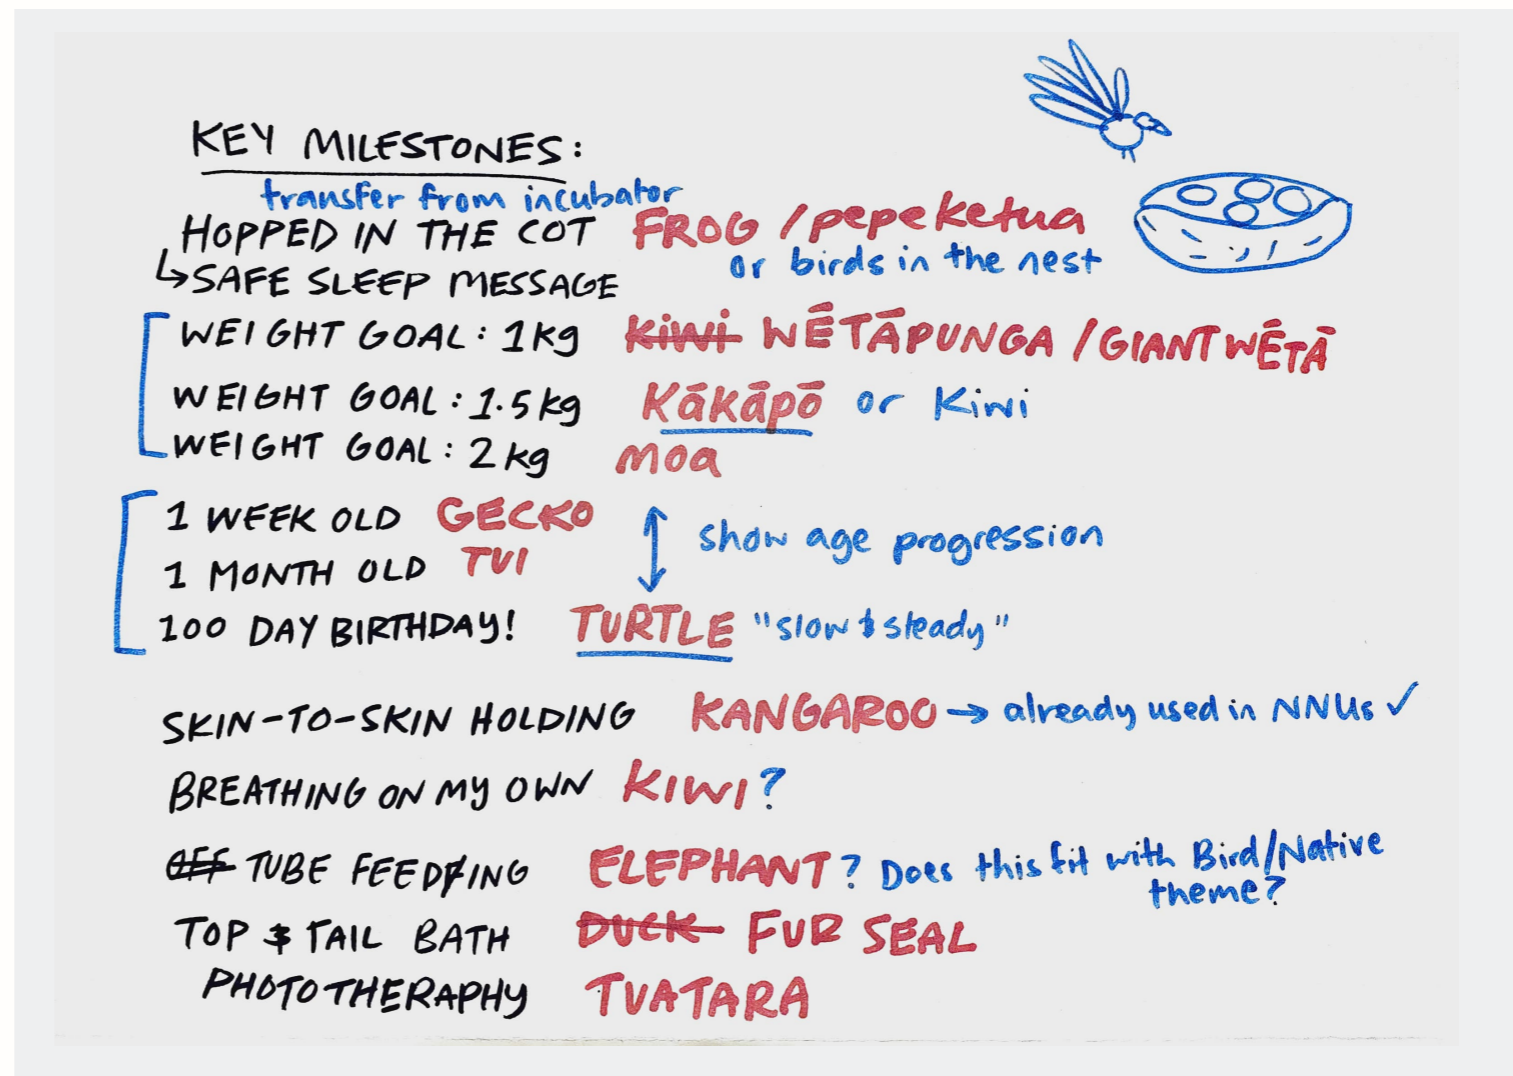 KEY MILESTONES:
transfer from incubator
HOPPED IN THE COT FROG / pepeketua
or birds in the nest
↳ SAFE SLEEP MESSAGE
WEIGHT GOAL: 1kg Kiwi WĒTĀPUNGA / GIANT WĒTĀ
WEIGHT GOAL: 1.5kg Kākāpō or Kiwi
WEIGHT GOAL: 2kg moa
1 WEEK OLD GECKO
show age progression
1 MONTH OLD TUI
100 DAY BIRTHDAY! TURTLE "slow & steady"
SKIN-TO-SKIN HOLDING KANGAROO → already used in NNUs ✓
BREATHING ON MY OWN KIWI?
OFF TUBE FEEDING ELEPHANT? Does this fit with Bird/Native
theme?
TOP & TAIL BATH DUCK FUR SEAL
PHOTOTHERAPHY TUATARA